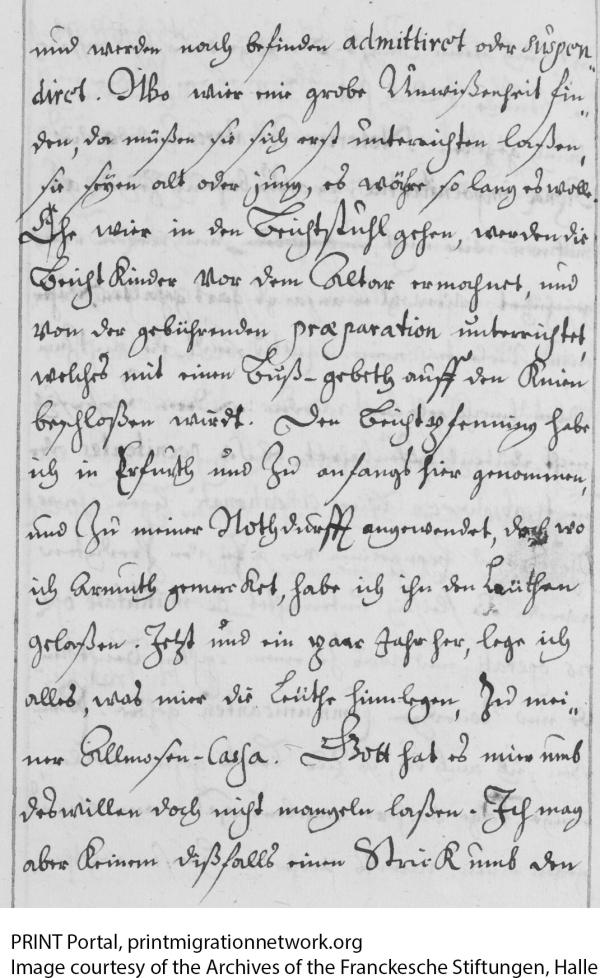 und werden nach befinden admittiret oder suspen-
diret. Wo wier eine grobe Unwißenheit fin-
den, da müßen sie sich erst unterrichten laßen,
sie seyen alt oder jung, es währe so lang es wolle.
Ehe wier in den Beichtstuhl gehen, werden die
Beicht Kinder vor dem Altar ermahnet, und
von der gebührenden præparation unterrichtet,
welches mit einen Buß-gebeth auff den Knien
beschloßen wirdt. Den Beichtpfenning habe
ich in Erfurth und zu anfangs hier genommen,
und zu meiner Nothdurfft angewendet, doch wo
ich Armuth gemercket, habe ich ihn den Leüthen
gelaßen. Jetzt und ein paar Jahr her, lege ich
alles, was mier die Leüthe hinnlegen, zu mei-
ner Allmosen-Cassa. Gott hat es mier umb
deswillen doch nicht mangeln laßen. Ich mag
aber Keinem dißfalls einen Strick umb den
PRINT Portal, printmigrationnetwork.org
Image courtesy of the Archives of the Franckesche Stiftungen, Halle